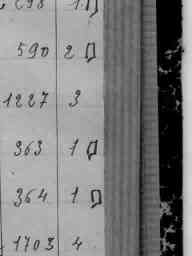 298 1 Д
590 2 Д
1227 3
363 1 Д
364 1 Д
1703 4